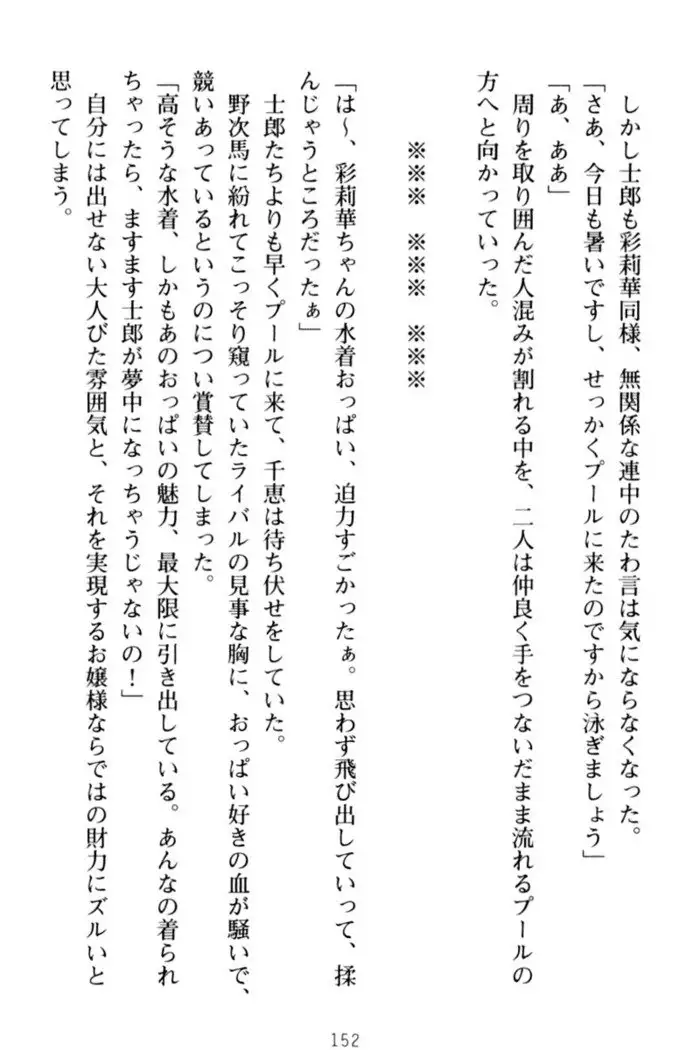 しかし士郎も彩莉華同様、無関係な連中のたわ言は気にならなくなった。
「さあ、今日も暑いですし、せっかくプールに来たのですから泳ぎましょう」
「あ、ああ」
周りを取り囲んだ人混みが割れる中を、二人は仲良く手をつないだまま流れるプールの
方へと向かっていった。
※※※　※※※　※※※
「は～、彩莉華ちゃんの水着おっぱい、迫力すごかったぁ。思わず飛び出していって、揉
んじゃうところだったぁ」
士郎たちよりも早くプールに来て、千恵は待ち伏せをしていた。
野次馬に紛れてこっそり窺っていたライバルの見事な胸に、おっぱい好きの血が騒いで、
競いあっているというのについ賞賛してしまった。
「高そうな水着、しかもあのおっぱいの魅力、最大限に引き出している。あんなの着られ
ちゃったら、ますます士郎が夢中になっちゃうじゃないの！」
自分には出せない大人びた雰囲気と、それを実現するお嬢様ならではの財力にズルいと
思ってしまう。
152